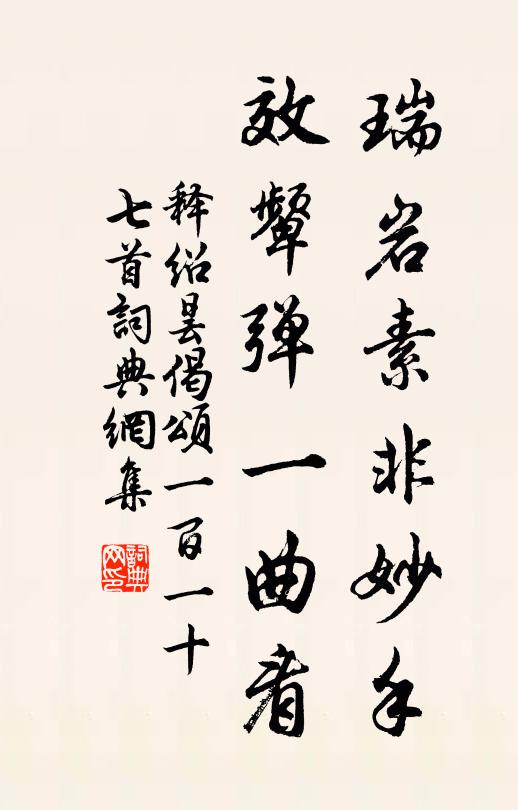 瑞岩素非妙手
效颦弹一曲看
释绍昙偈頌一百一十
七首詞典網集
詞典網印